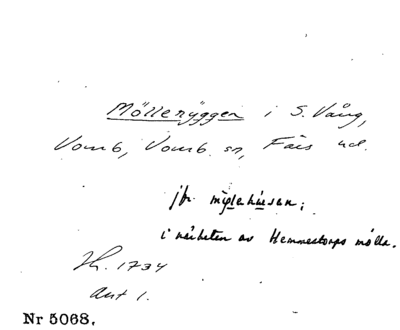 Mölleryggen i S. Vång,
Vomb, Vomb. sn, Färs hd.
jfr möllehusen;
i närheten av Hemmestorps mölla.
1734
Ant 1.
Nr 5068.